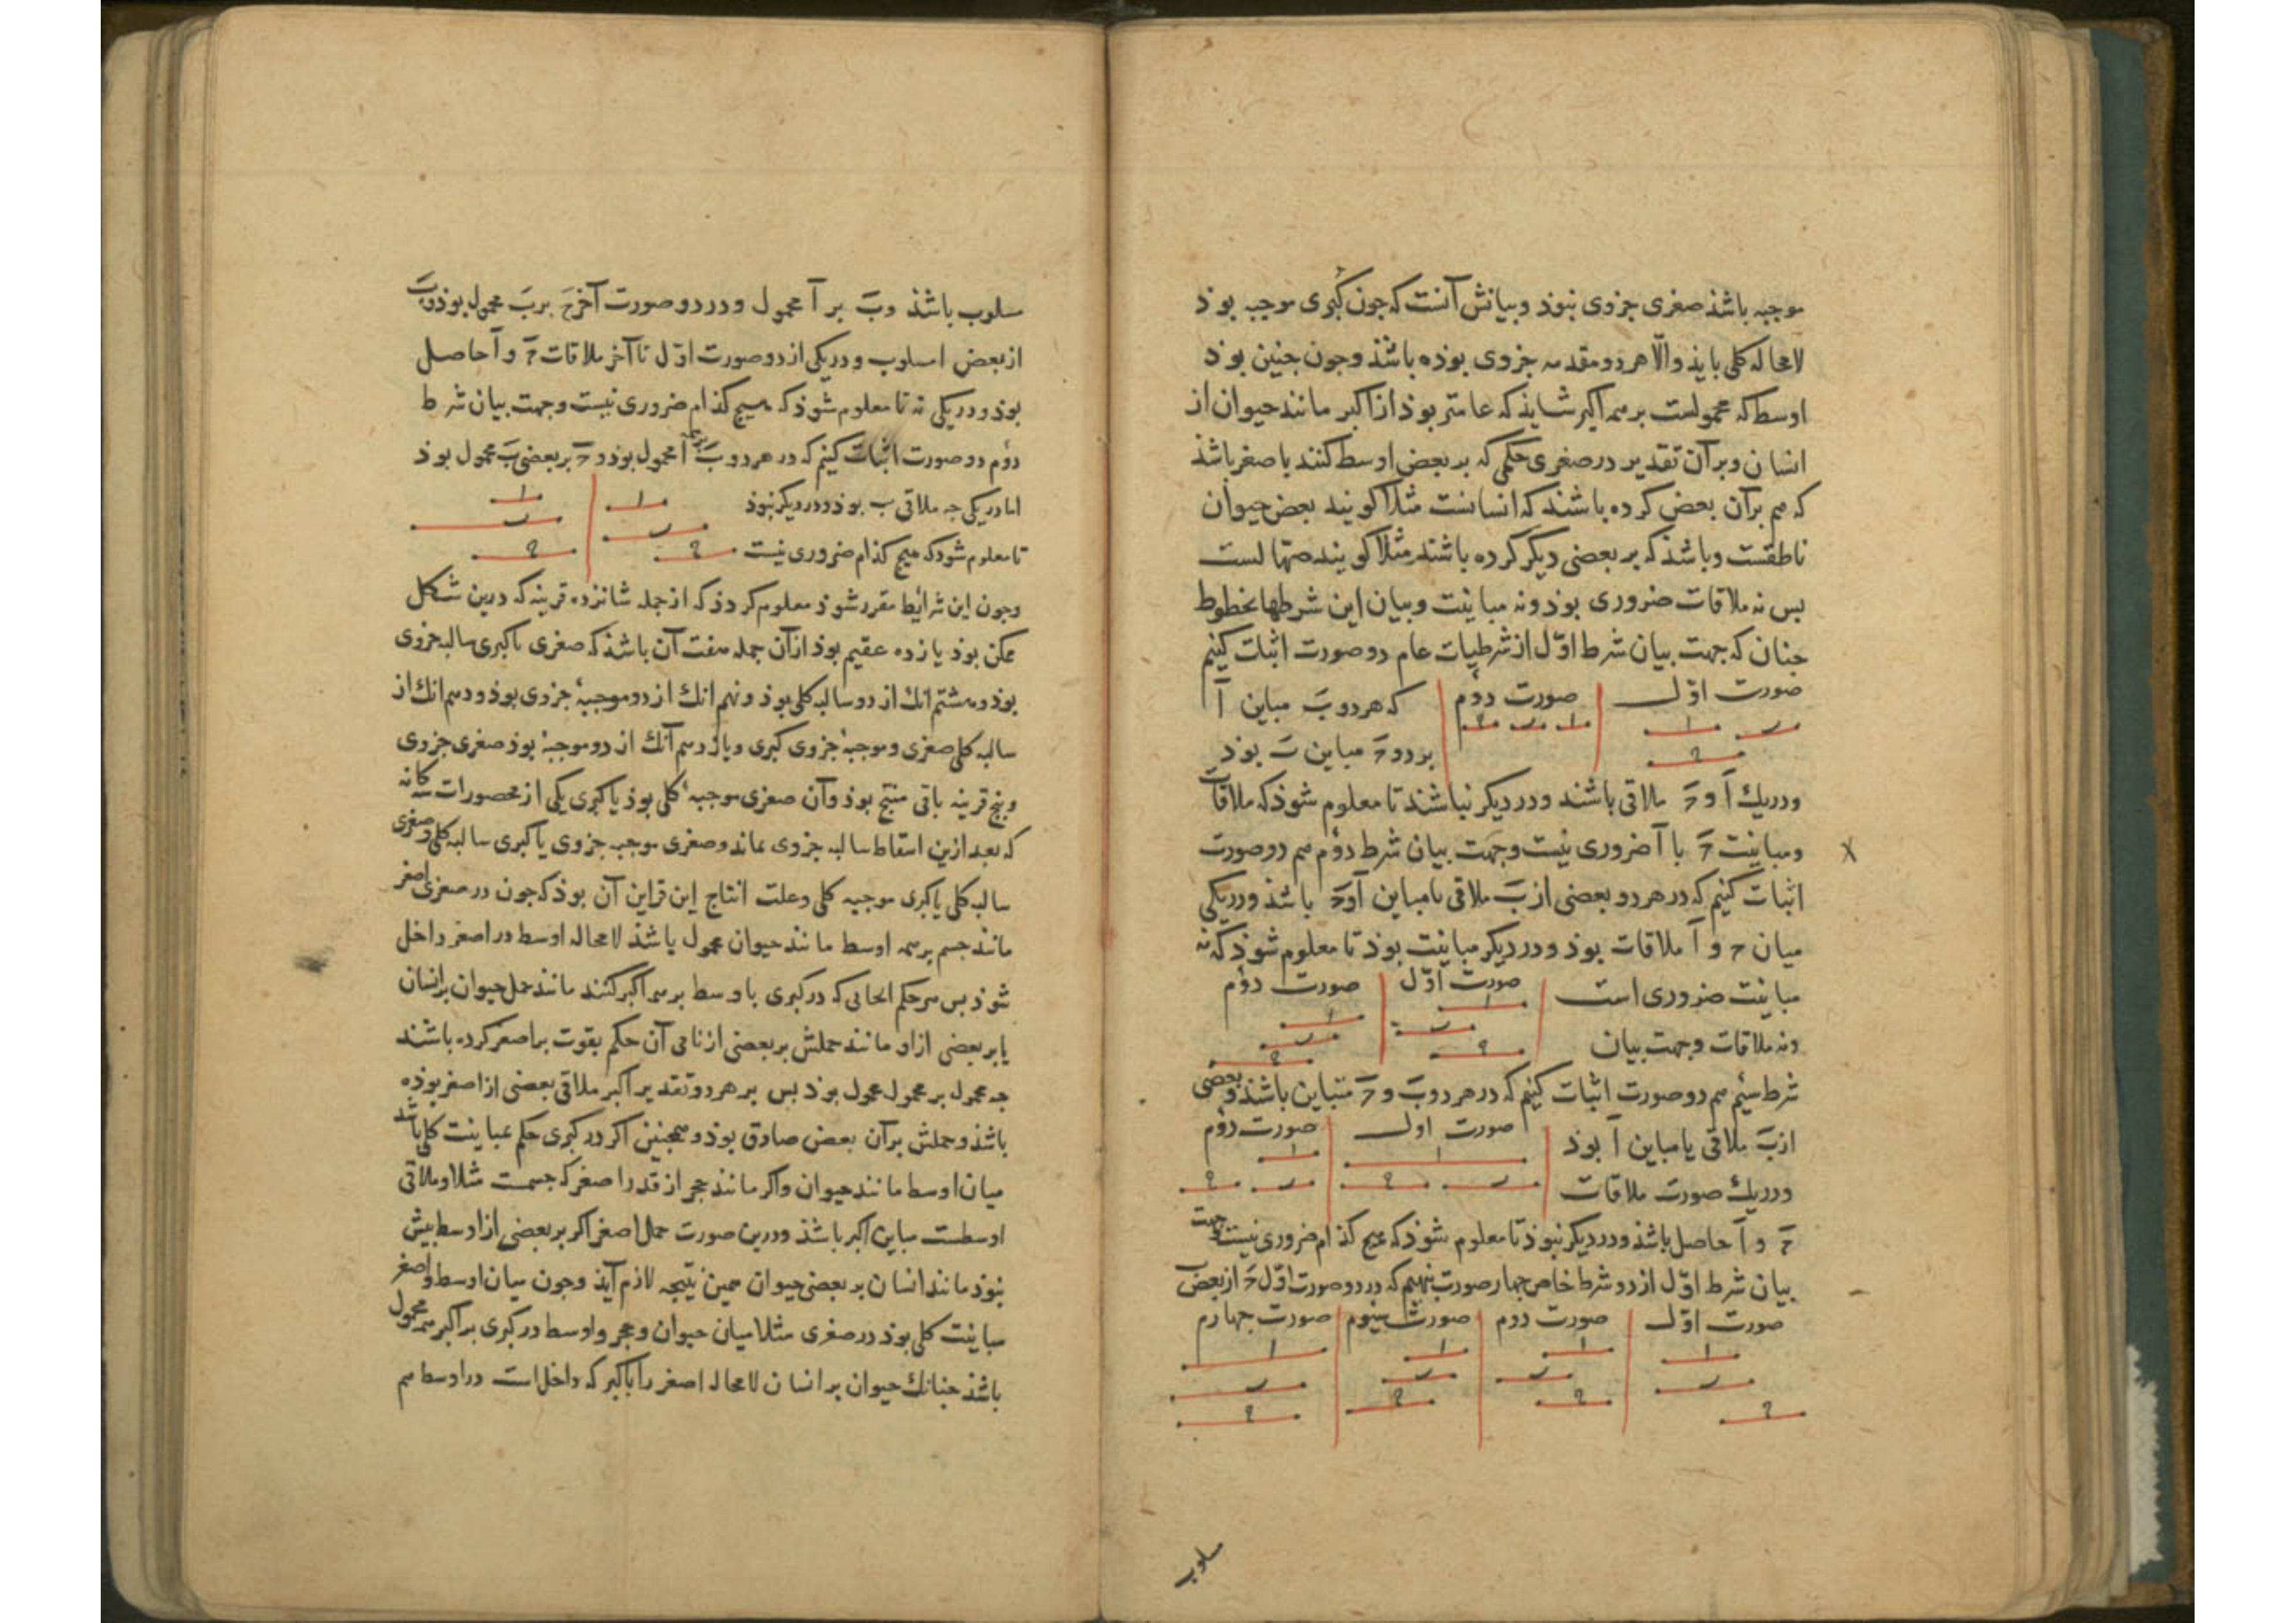 موجبه باشذ صغری جزوی نبوذ و بیانش آنست که جون کبری موجبه بوذ
لامحاله کلی بایذ و الّا هر دو مقدمه جزوی بوذه باشذ و جون جنین بوذ
اوسط که محمولست بر همه اکبر شایذ که عامتر بوذ از اکبر مانند حیوان از
انسان و بر آن تقدیر در صغری حکمی که بر بعض اوسط کنند باصغر باشذ
که هم بر آن بعض کرده باشند که انسانست مثلا کویند بعض حیوان
ناطقست و باشذ که بر بعضی دیکر کرده باشند مثلا کویند صهالست
بس نه ملاقات ضروری بوذ و نه مباینت و بیان این شرطها بخطوط
جنان که جهت بیان شرط اوّل از شرطیات عام دو صورت اثبات کنیم
صورت اوّل صورت دوم که هر دو بَ مباین آ
ب ا ا ب ح
ح بود و حَ مباین بَ بوذ
و در یک آ و حَ ملاقی باشند و در دیکر نباشند تا معلوم شوذ که ملاقات
و مباینت حَ با آ ضروری نیست و جهت بیان شرط دوم هم دو صورت
اثبات کنیم که در هر دو بعضی از بَ ملاقی یا مباین آ و حَ باشذ و در یکی
میان ح و آ ملاقات بوذ و در دیکر مباینت بوذ تا معلوم شوذ که نه
مباینت ضروری است صورت اوّل صورت دوم
ا ا
ب ب
و نه ملاقات و جهت بیان ح ح
شرط سیُم هم دو صورت اثبات کنیم که در هر دو بَ و حَ متباین باشند و بعضی
از بَ ملاقی یا مباین آ بوذ صورت اول صورت دوم
ا ا
و در یک صورت ملاقات ب ح ب ح
حَ و آ حاصل باشذ و در دیکر نبوذ تا معلوم شوذ که هیج کذام ضروری نیست و جهت
بیان شرط اوّل از دو شرط خاص جهار صورت بنهیم که در دو صورت اوّل حَ از بعض بَ
صورت اوّل صورت دوم صورت سیوم صورت جهارم
ا ا ا ا
ب ب ب ب
ح ح ح ح
سلوب
سلوب باشذ و بَ بر آ محمول و در دو صورت آخر حَ بر بَ محمول بوذ و بَ
از بعض ا مسلوب و در یکی از دو صورت اوّل تا آخر ملاقات حَ و آ حاصل
بوذ و در یکی نه تا معلوم شوذ که هیج کذام ضروری نیست و جهت بیان شرط
دوُم دو صورت اثبات کنیم که در هر دو بَ بر همه آ محمول بوذ و حَ بر بعضی بَ محمول بوذ
اما در یکی جه ملاقی ب بوذ و در دیکر نبوذ ا ا
ب ب
تا معلوم شوذ که هیج کذام ضروری نیست ح ح
و جون این شرایط مقرر شوذ معلوم کردذ که از جمله شانزده قرینه که درین شکل
ممکن بوذ یازده عقیم بوذ از آن جمله هفت آن باشذ که صغری یا کبری سالبه جزوی
بوذ و هشتم آنک از دو سالبه کلی بوذ و نهم آنک از دو موجبهٔ جزوی بوذ و دهم آنک از
سالبه کلی صغری و موجبهٔ جزوی کبری و یازدهم آنک از دو موجبهٔ بوذ صغری جزوی
و بنج قرینه باقی منتج بوذ و آن صغری موجبهٔ کلی بوذ با کبری یکی از محصورات سه کانه
که بعد ازین اسقاط سالبه جزوی بماند و صغری موجبه جزوی با کبری سالبه کلی و صغری
سالبه کلی با کبری موجبه کلی و علت انتاج این قراین آن بوذ که جون در صغری اصغر
مانند جسم بر همه اوسط مانند حیوان محمول باشذ لامحاله اوسط در اصغر داخل
شوذ بس هر حکم ایجابی که در کبری باوسط بر همه اکبر کنند مانند حمل حیوان بر انسان
یا بر بعضی از او مانند حملش بر بعضی از نامی آن حکم بقوت بر اصغر کرده باشند
جه محمول بر محمول محمول بوذ بس بر هر دو تقدیر اکبر ملاقی بعضی از اصغر بوذه
باشذ و حملش بر آن بعض صادق بوذ و همجنین اکر در کبری حکم بمباینت کلی باشد
میان اوسط مانند حیوان و اکبر مانند حجر از قدر اصغر که جسمست مثلا و ملاقی
اوسطست مباین اکبر باشذ و درین صورت حمل اصغر اکر بر بعضی از اوسط بیش
نبوذ مانند انسان بر بعضی حیوان همین نتیجه لازم آیذ و جون میان اوسط و اصغر
مباینت کلی بوذ در صغری مثلا میان حیوان و حجر و اوسط در کبری بر اکبر همه محمول
باشذ جنانک حیوان بر انسان لامحاله اصغر را با اکبر که داخل است در اوسط هم